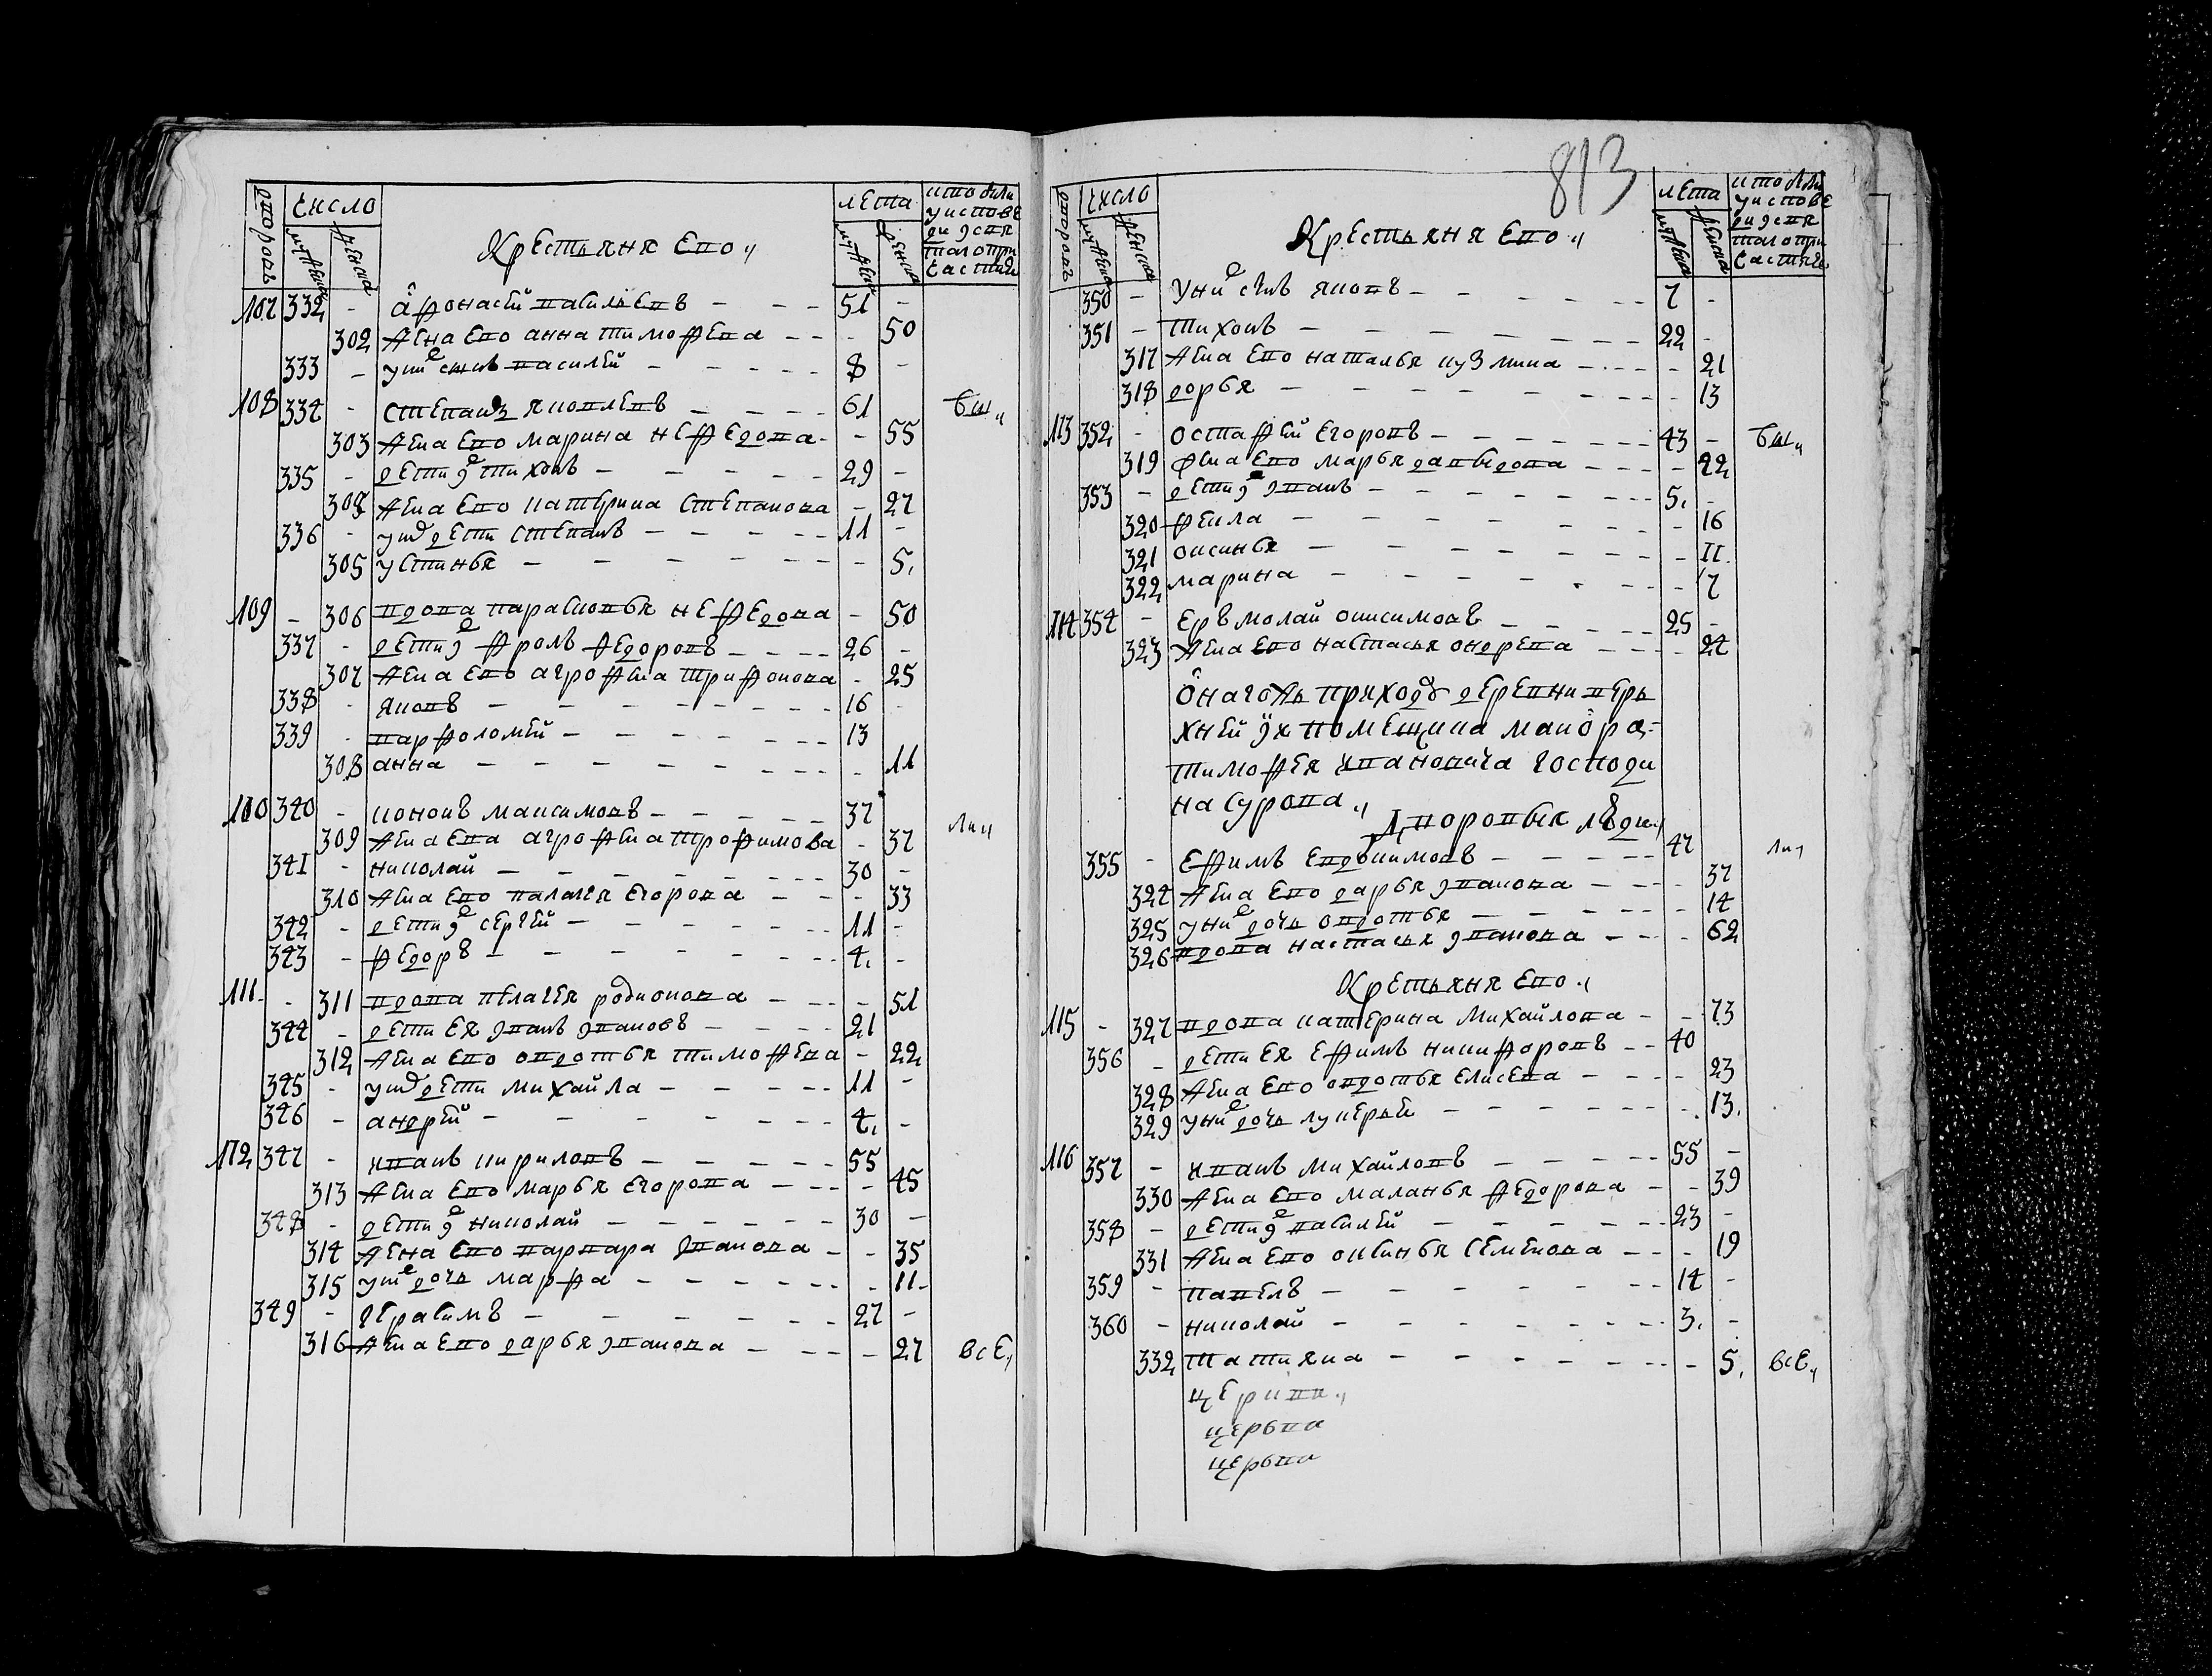 дворовъ число лета кто были
у исповеди и святаго причастия
мужеска женска мужеска женска
Крестьяня ево
107 332 - афонасей васильевъ - 51 -
302 жена ево анна тимофева - - 50
333 - у них сынъ василей - 8 -
108 334 - степанъ яковлевъ - 61 - был
303 жена ево марина нефедова - - 55
335 - дети их тихонъ - 29 -
304 жена ево катерина степанова - 27
336 - у них дети степанъ - 11 -
305 устинья - - 5.
109 - 306 вдова парасковья нефедова - 50
337 - дети ея фролъ федоровъ - 26 -
307 жена ево агрофена трифонова - 25
338 - яковъ - 16 -
339 - варфоломей - 13
308 анна - - 11
110 340 - кононъ максимовъ - 37
309 жена ева агрофена трофимова - 37
341 - николай - 30 -
310 жена ево палагея егорова - - 33
342 - дети их сергей - 11 -
343 - федоръ - 4. -
111 - 311 вдова пелагея родионова - - 51
344 - дети ея иванъ ивановъ - 21
312 жена ево овдотья тимофева - 22
345 - у них дети михайла - 11 -
346 - андрей - 4. -
112 347 - иванъ кириловъ - 55
313 жена ево марья егорова - - 45
348 - дети их николай - 30 -
314 жена ево варвара иванова - - 35
315 у них дочь марфа - - 11 -
349 - герасимъ - 27 -
316 жена ево дарья иванова - - 27 все
813
дворовъ число лета кто были
у исповеди и святаго причастия
мужеска женска мужеска женска
Крестьяня ево
350 - у них сынъ яковъ - 7 -
351 - тихонъ - 22 -
317 жена ево наталья кузмина - - 21
318 дарья - - 13
113 352 - остафей егоровъ - 43 - был
319 жена ево марья давыдова - - 22
353 - дети их иванъ - 5. -
320 фекла - - 16
321 оксинья - - 11.
322 марина - - 7
114 354 - ермолай онисимовъ - 25 -
323 жена ево настасья ондрева - - 24
онагожъ приходу деревни вер
хней их помещика маиора
тимофея ивановича господи
на сурова
Дворовыя люди
355 - ефимъ евдокимовъ - 47
324 жена ево дарья иванова - - 37
325 у них дочь овдотья - - 14
326 вдова настасья иванова - - 62
Крестьяня ево
115 - 327 вдова катерина михайлова - - 73
356 - дети ея ефимъ никифоровъ - 40
328 жена ево овдотья елисева - - 23
329 у них дочь лукерья - - 13.
116 357 - иванъ михайловъ - 55 -
330 жена ево маланья федорова - - 39
358 - дети их василей - 23 -
331 жена ево оксинья семенова - - 19
359 - павелъ - 14 -
360 - николай - 3. -
332 татияна - - 5. все
церкви
церьва
церьви